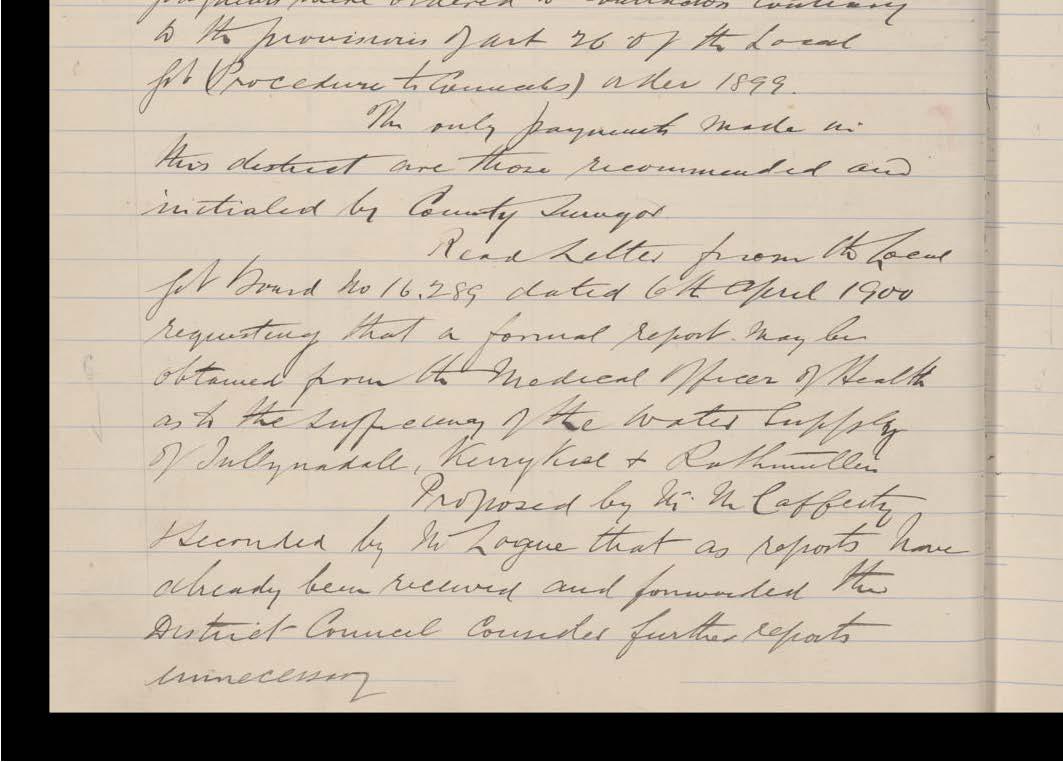 payments were ordered to contractors contrary
to the provisions of art 26 of the Local
Gvt (Procedure to Councils) order 1899.
The only payments made in
this district are those recommended and
initialed by County Surveyor
Read Letter from the Local
Gvt Board No 16.289 dated 6th April 1900
requesting that a formal report may be
obtained from the Medical Officer of Health
as to the sufficiency of the Water Supply
of Tullynadall, Kerrykeel & Rathmullen
Proposed by Mr. McCafferty
& Seconded by Mr Logue that as reports have
already been received and forwarded the
District Council consider further reports
unnecessary